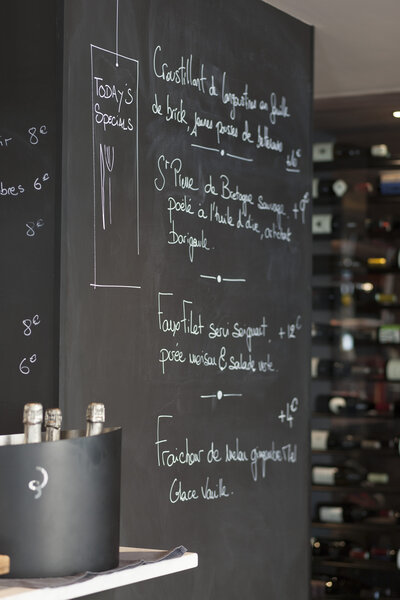 8€
bres 6€
8€
8€
6€
TODAY'S
SPECIALS
Croustillant de langoustine en feuille
de brick, jeunes pousses de betterave
St Pierre de Bretagne sauvage. +9€
poelé à l'huile d'olive, artichaut
barigoule.
Faux Filet servi saignant. +12€
purée maison & salade verte.
+4€
Fraicheur de melon gingembre Miel
Glace Vanille.